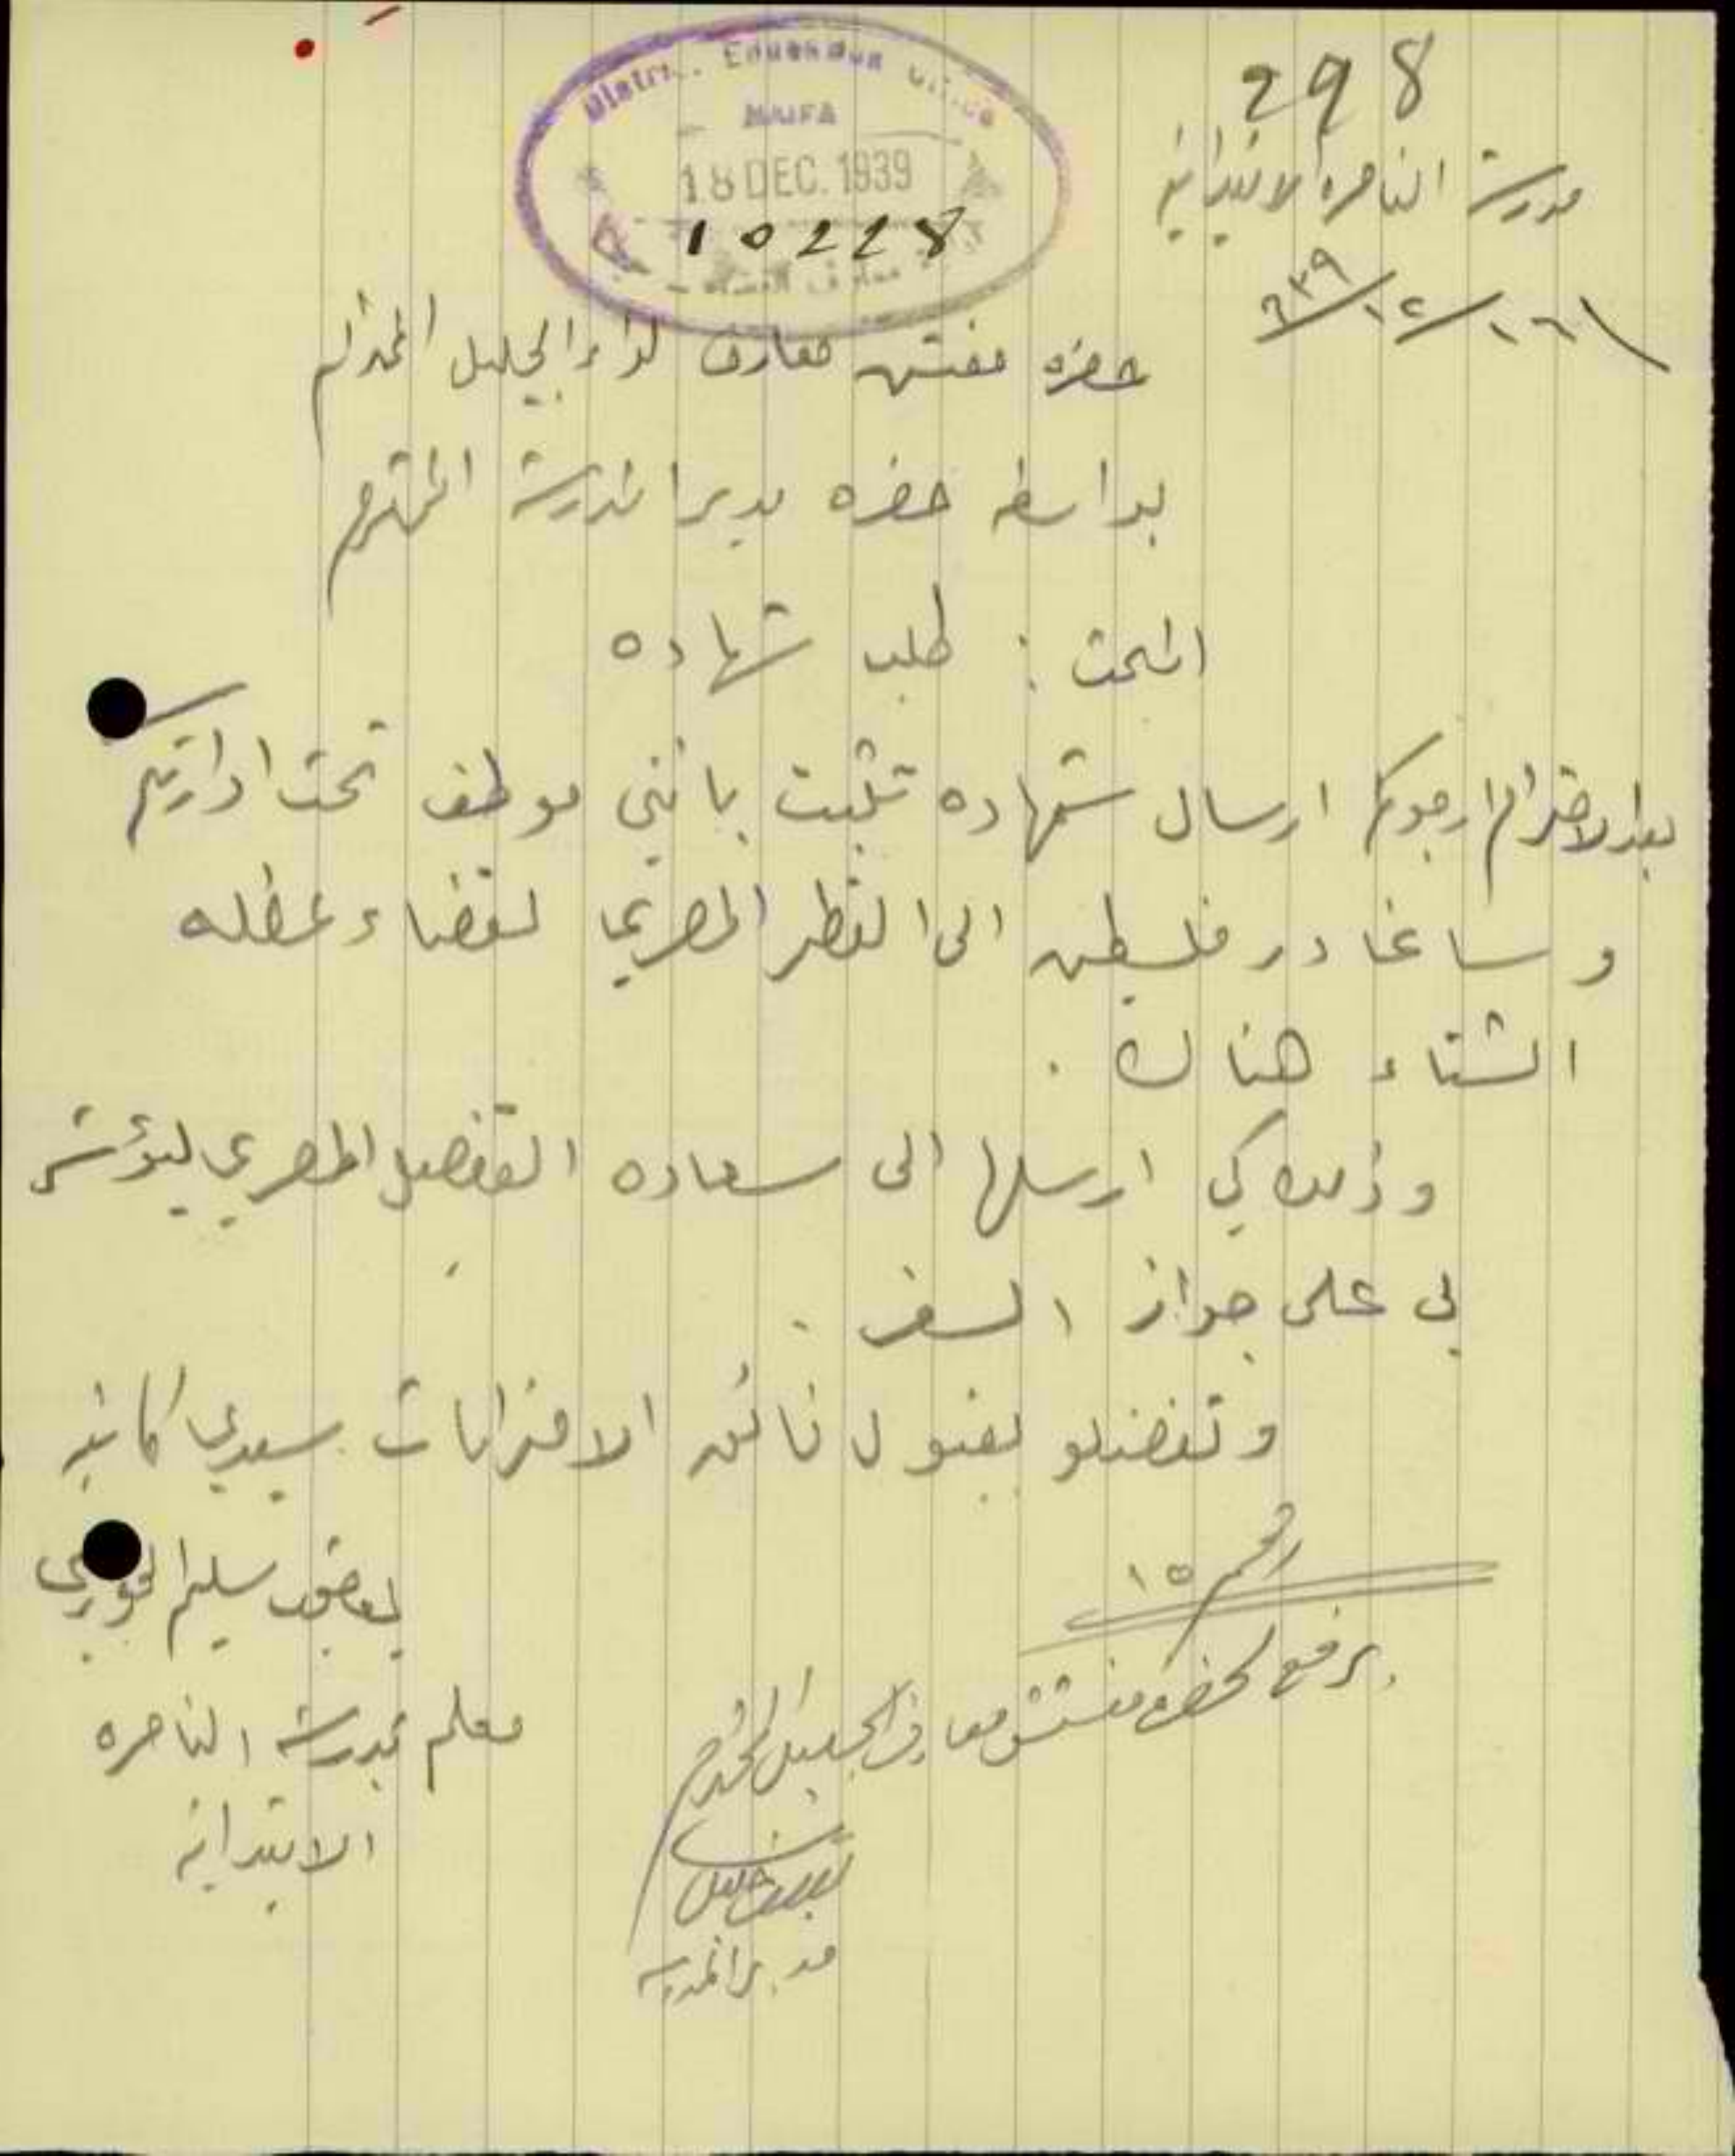 298
District Education Office
HAIFA
18 DEC. 1939
10228
مدرسة الناصره الابتدائية
١٦/١٢/٩٣٩
حضرة مفتش معارف لواء الجليل المحترم
بواسطة حضرة مدير المدرسة المحترم
المبحث : طلب شهاده
بعد الاحترام ارجوكم ارسال شهاده تثبت بانني موظف تحت ادارتكم
و ساغادر فلسطين الى القطر المصري لقضاء عطله
الشتاء هناك .
وذلك كي ارسلها الى سعاده القنصل المصري ليؤشر
لي على جواز السفر .
وتفضلو بقبول فائق الاحترامات سيدي
يعقوب سليم الخوري
معلم بمدرسة الناصره
الابتدائية
رقم ١٥
يرفع لحضرة مفتش معارف الجليل المحترم
مدير المدرسة